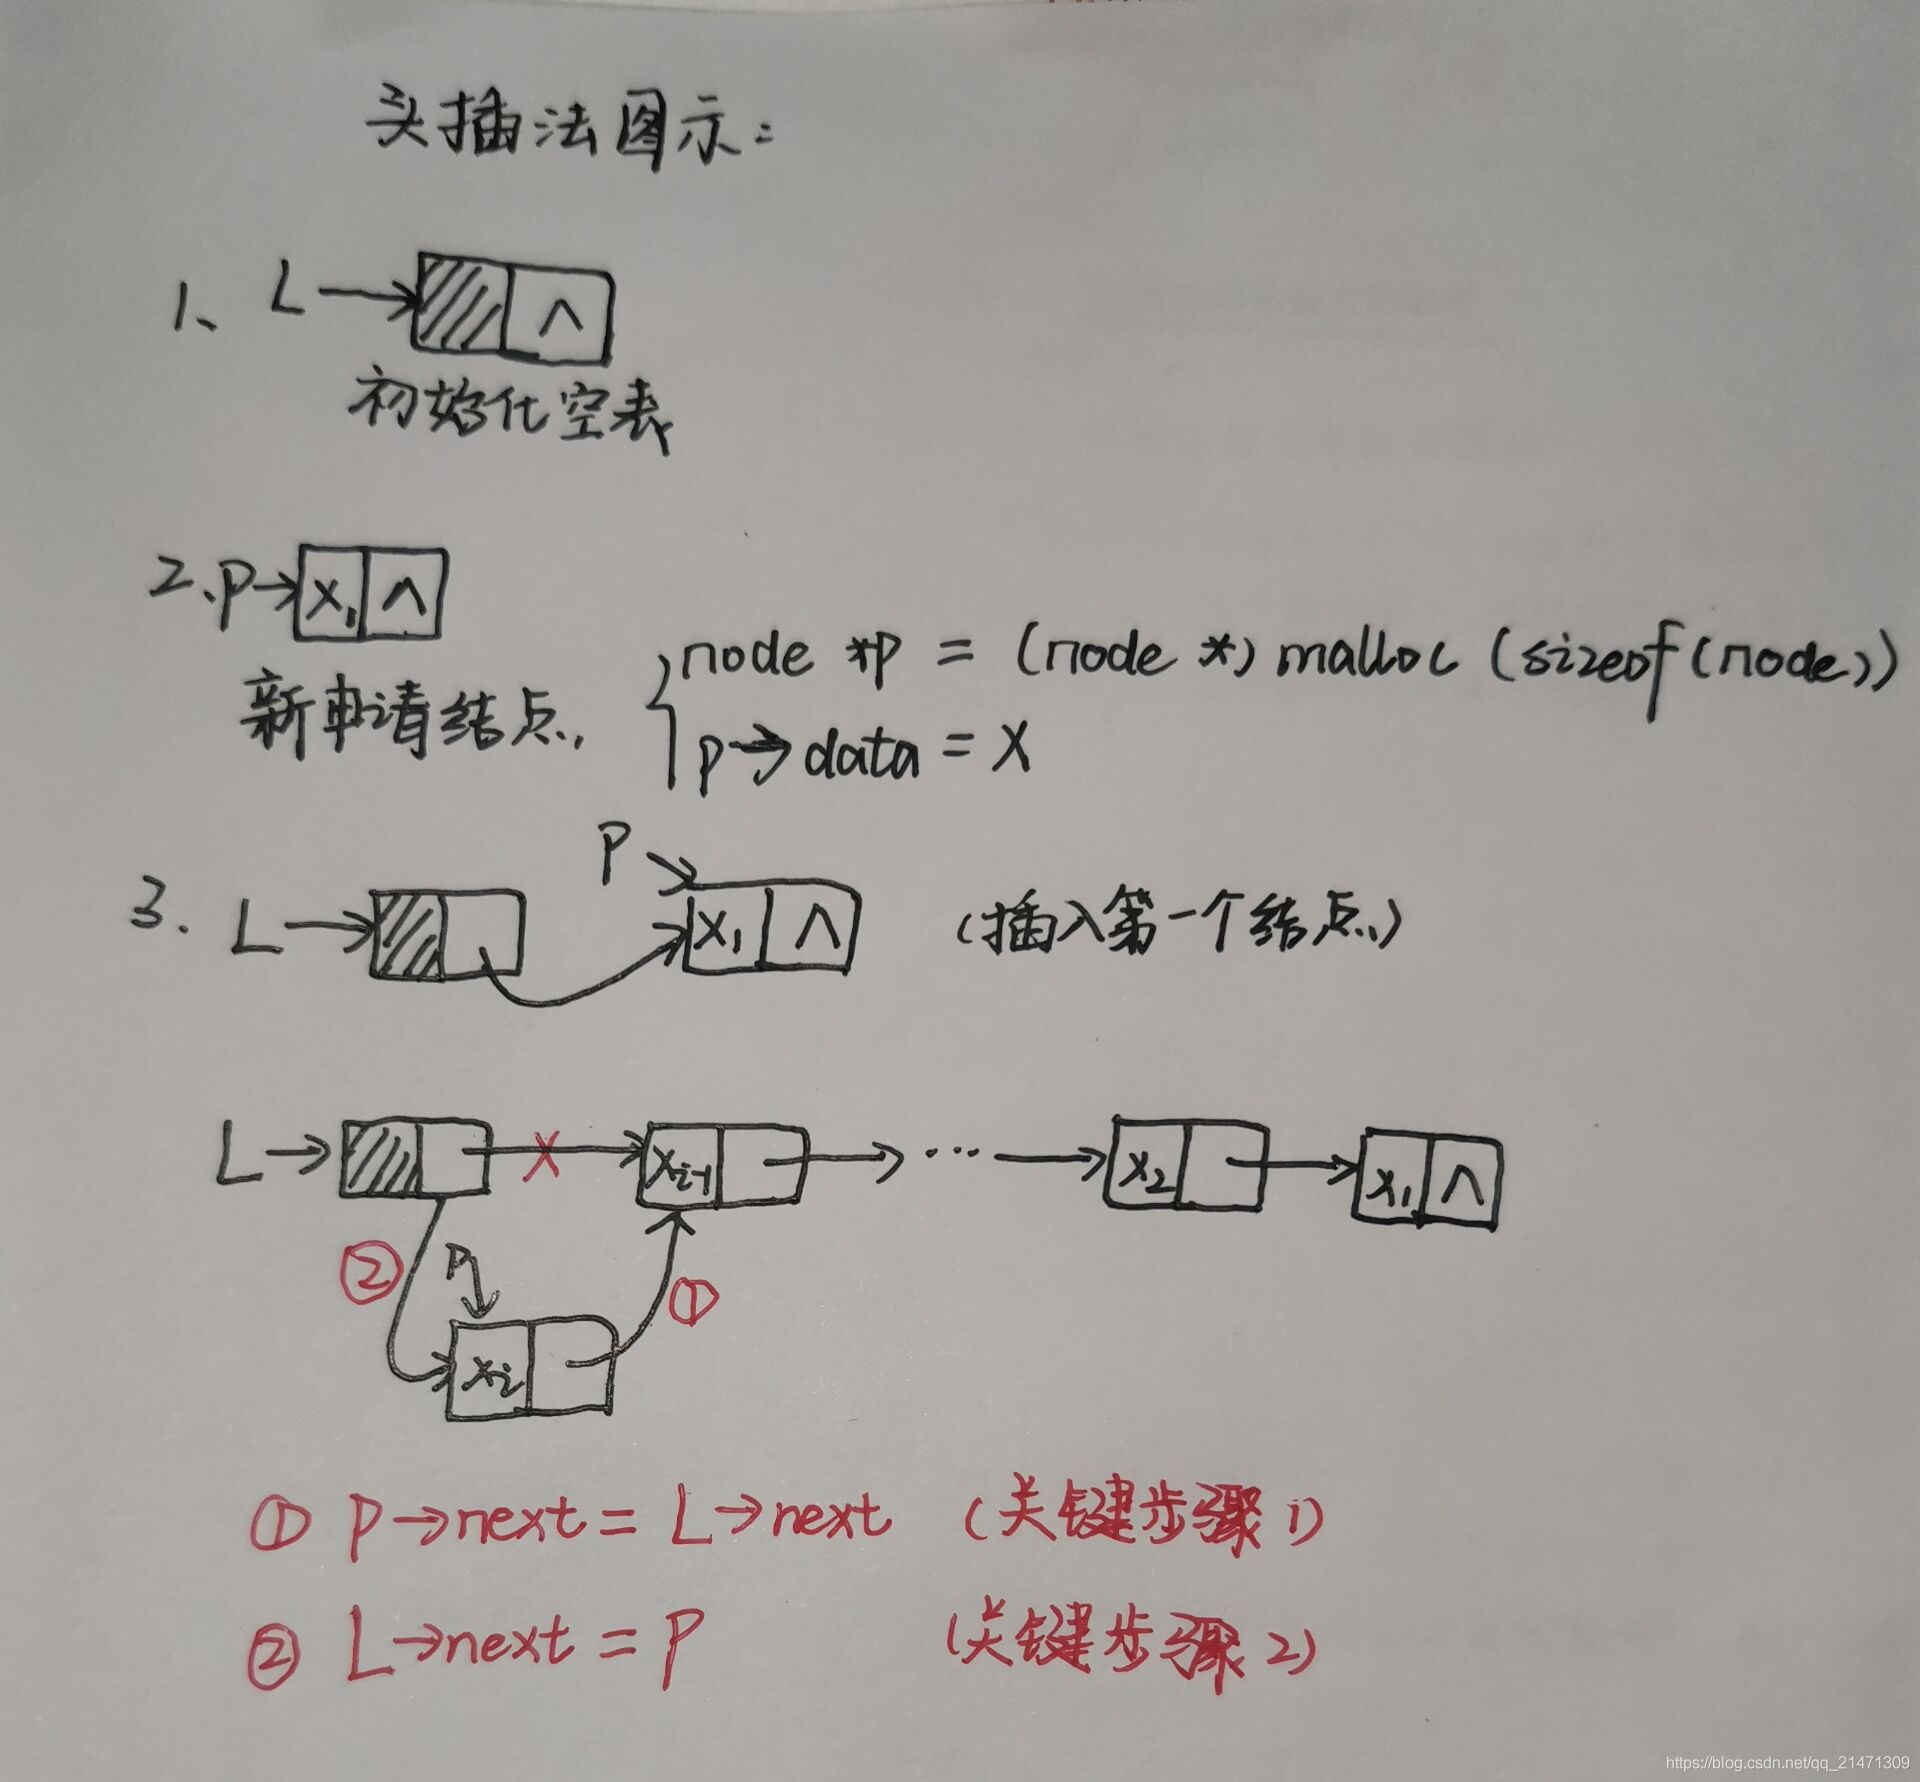 头插法图示：
1、 L → ∧
初始化空表
2、P→ x₁ ∧
新申请结点, { node *p = (node *) malloc (sizeof(node))
p→data = X
P
3. L → x₁ ∧ (插入第一个结点)
L→ x xᵢ₋₁ → ... → x₂ → x₁ ∧
② P ①
xᵢ
① P→next = L→next (关键步骤1)
② L→next = P (关键步骤2)
https://blog.csdn.net/qq_21471309